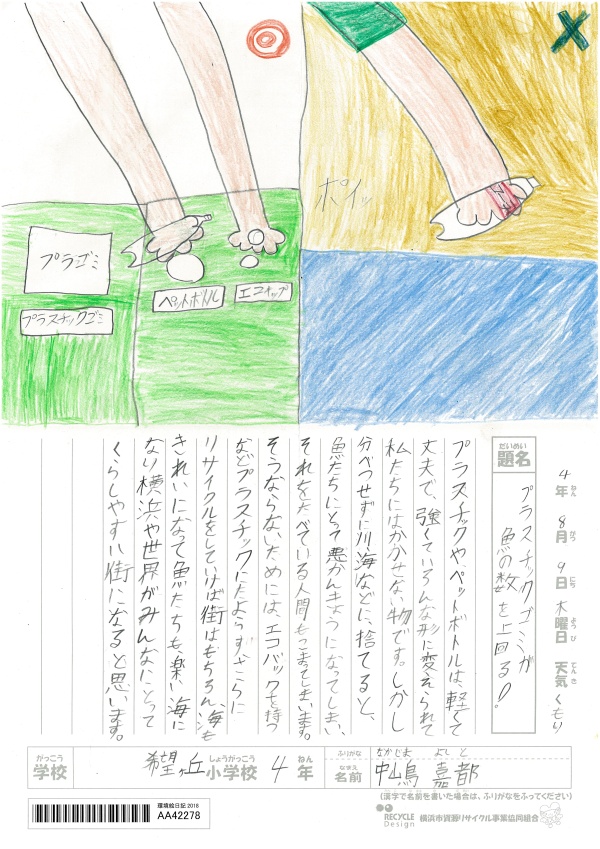 プラゴミ
プラスチックゴミ
ペットボトル
エコキャップ
ポイッ
4年 8月 9日 木曜日 天気 くもり
ねん がつ にち ようび てんき
だいめい
題名
プラスチックゴミが
魚の数を上回る!
プラスチックや、ペットボトルは、軽くて
丈夫で、強くていろんな形に変えられて
私たちにはかかせない物です。しかし
分べつせずに川、海などに、捨てると、
魚たちにとって悪かんきょうになってしまい、
それをたべている人間もこまってしまいます。
そうならないためには、エコバックを持つ
などプラスチックにたよらず、さらに
リサイクルをしていけば街はもちろん、海も
きれいになって魚たちも、楽しい海に
なり横浜や世界がみんなにとって
くらしやすい街になると思います。
がっこう
学校
希望ヶ丘
しょうがっこう
小学校
4
ねん
年
ふりがな
なかじま よしと
なまえ
名前
中嶋 嘉都
(漢字で名前を書いた場合は、ふりがなをふってください)
環境絵日記 2018
AA42278
RECYCLE
Design
横浜市資源リサイクル事業協同組合